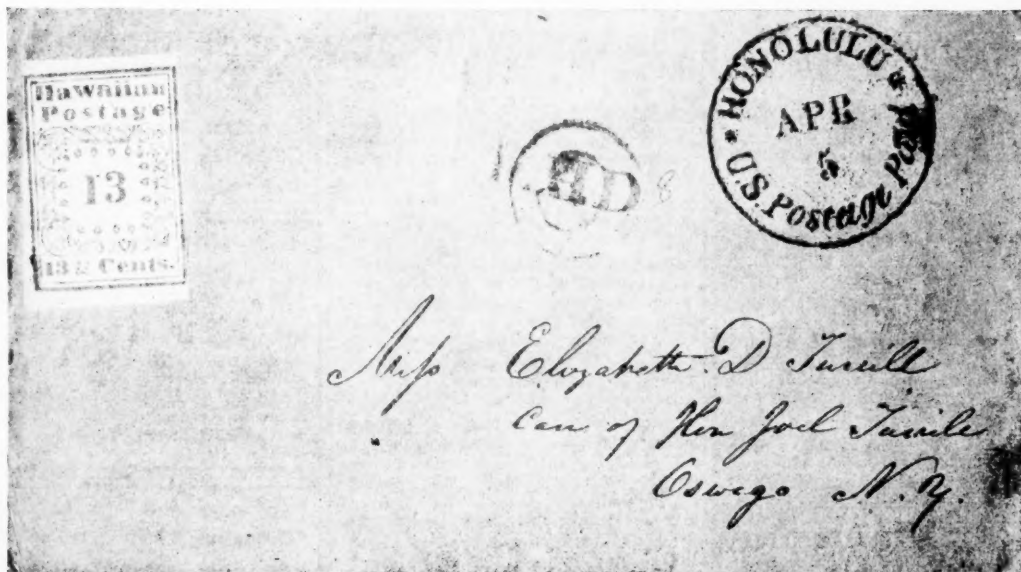 Hawaiian
Postage
13
13 Cents.
HONOLULU
APR
5
U.S. Postage Paid
8
Miss Elizabeth D Turrill
Care of Hon Joel Turrill
Oswego N.Y.